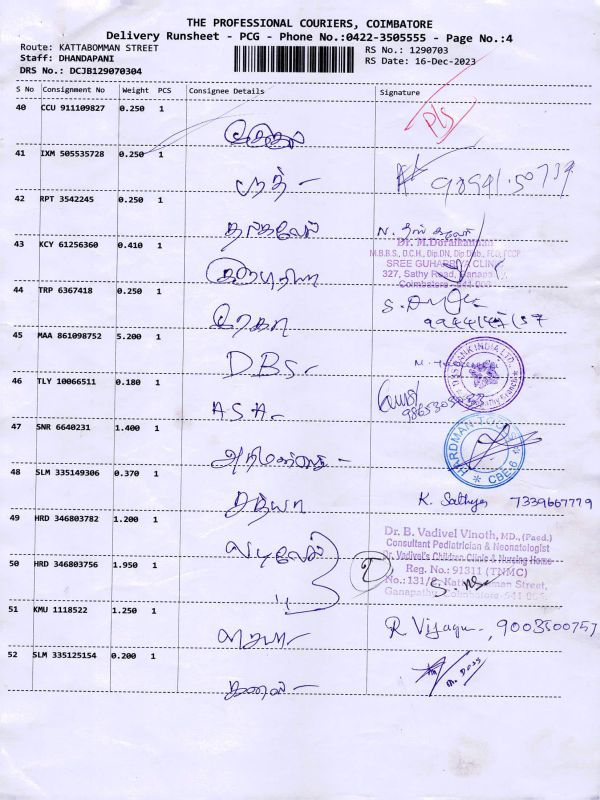 THE PROFESSIONAL COURIERS, COIMBATORE
Delivery Runsheet - PCG - Phone No.:0422-3505555 - Page No.:4
Route: KATTABOMMAN STREET
RS No.: 1290703
Staff: DHANDAPANI
RS Date: 16-Dec-2023
DRS No.: DCJB129070304
S No Consignment No Weight PCS Consignee Details Signature
40 CCU 911109827 0.250 1
P/S
41 IXM 505535728 0.250 1
42 RPT 3542245 0.250 1
தங்கவேல் N.
43 KCY 61256360 0.410 1
Dr. M.Doraikannan
M.B.B.S., D.C.H., Dip.DN, Dip.Diab.,
SREE GUHAPRIYA CLINIC
327, Sathy Road, Ganapathy,
Coimbatore - 641 006
குகபிரியா
44 TRP 6367418 0.250 1
ரேகா S.
45 MAA 861098752 5.200 1
D.B.S. DBS BANK INDIA LTD
46 TLY 10066511 0.180 1
A.S.A. 9865303033
47 SNR 6640231 1.400 1
HARDMAN TOOLS CBE-6
48 SLM 335149306 0.370 1
சத்யா K. Sathya 7339667779
49 HRD 346803782 1.200 1
வடிவேல்
Dr. B. Vadivel Vinoth, MD., (Paed.)
Consultant Pediatrician & Neonatologist
Dr. Vadivel's Children Clinic & Nursing Home
Reg. No.: 91311 (TNMC)
No.: 131/8, Kattabomman Street,
Ganapathy, Coimbatore - 641 006.
50 HRD 346803756 1.950 1
2
51 KMU 1118522 1.250 1
R Vijaya 9003500757
52 SLM 335125154 0.200 1
M. Doss